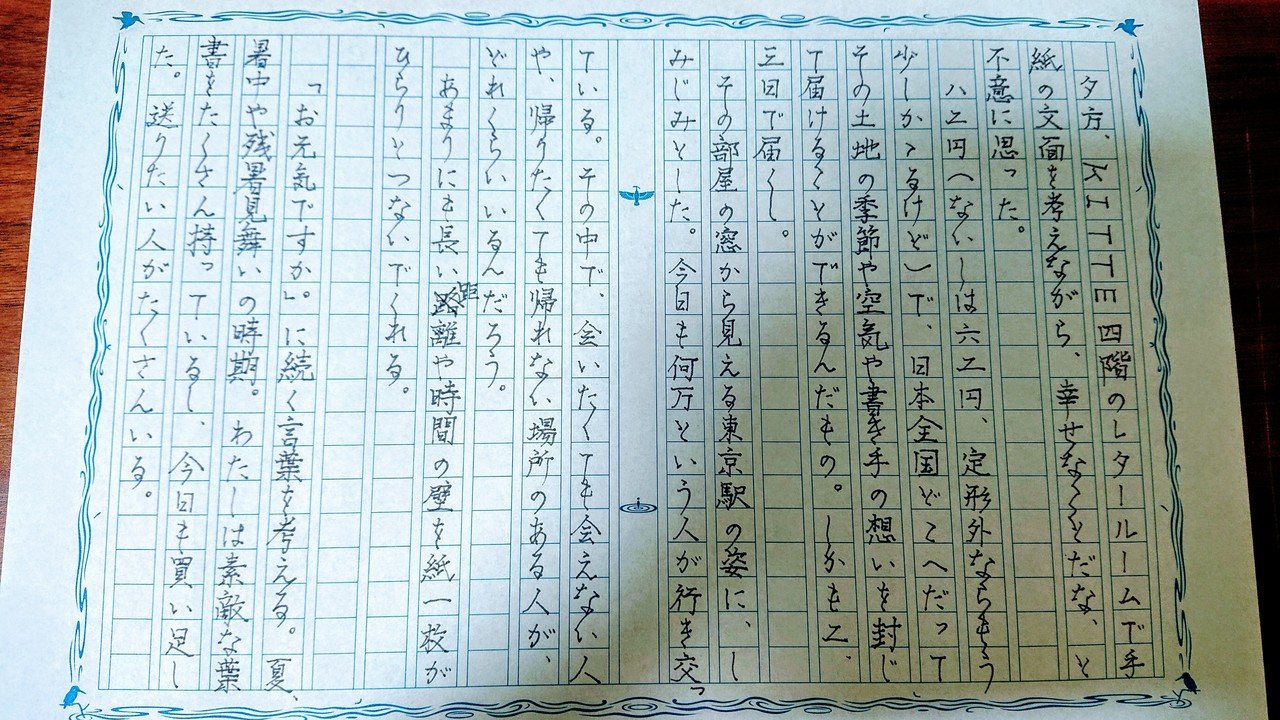 夕方、KITTE四階のレタールームで手
紙の文面を考えながら、幸せなことだな、と
不意に思った。
八二円(ないしは六二円、定形外ならもう
少しかゝるけど)で、日本全国どこへだって
その土地の季節や空気や書き手の想いを封じ
て届けることができるんだもの。しかも二、
三日で届くし。
その部屋の窓から見える東京駅の姿に、し
みじみとした。今日も何万という人が行き交っ
ている。その中で、会いたくても会えない人
や、帰りたくても帰れない場所のある人が、
どれくらいいるんだろう。
あまりにも長い距離や時間の壁を紙一枚が
ひらりとつないでくれる。
「お元気ですか」。に続く言葉を考える。夏、
暑中や残暑見舞いの時期。わたしは素敵な葉
書をたくさん持っているし、今日も買い足し
た。送りたい人がたくさんいる。